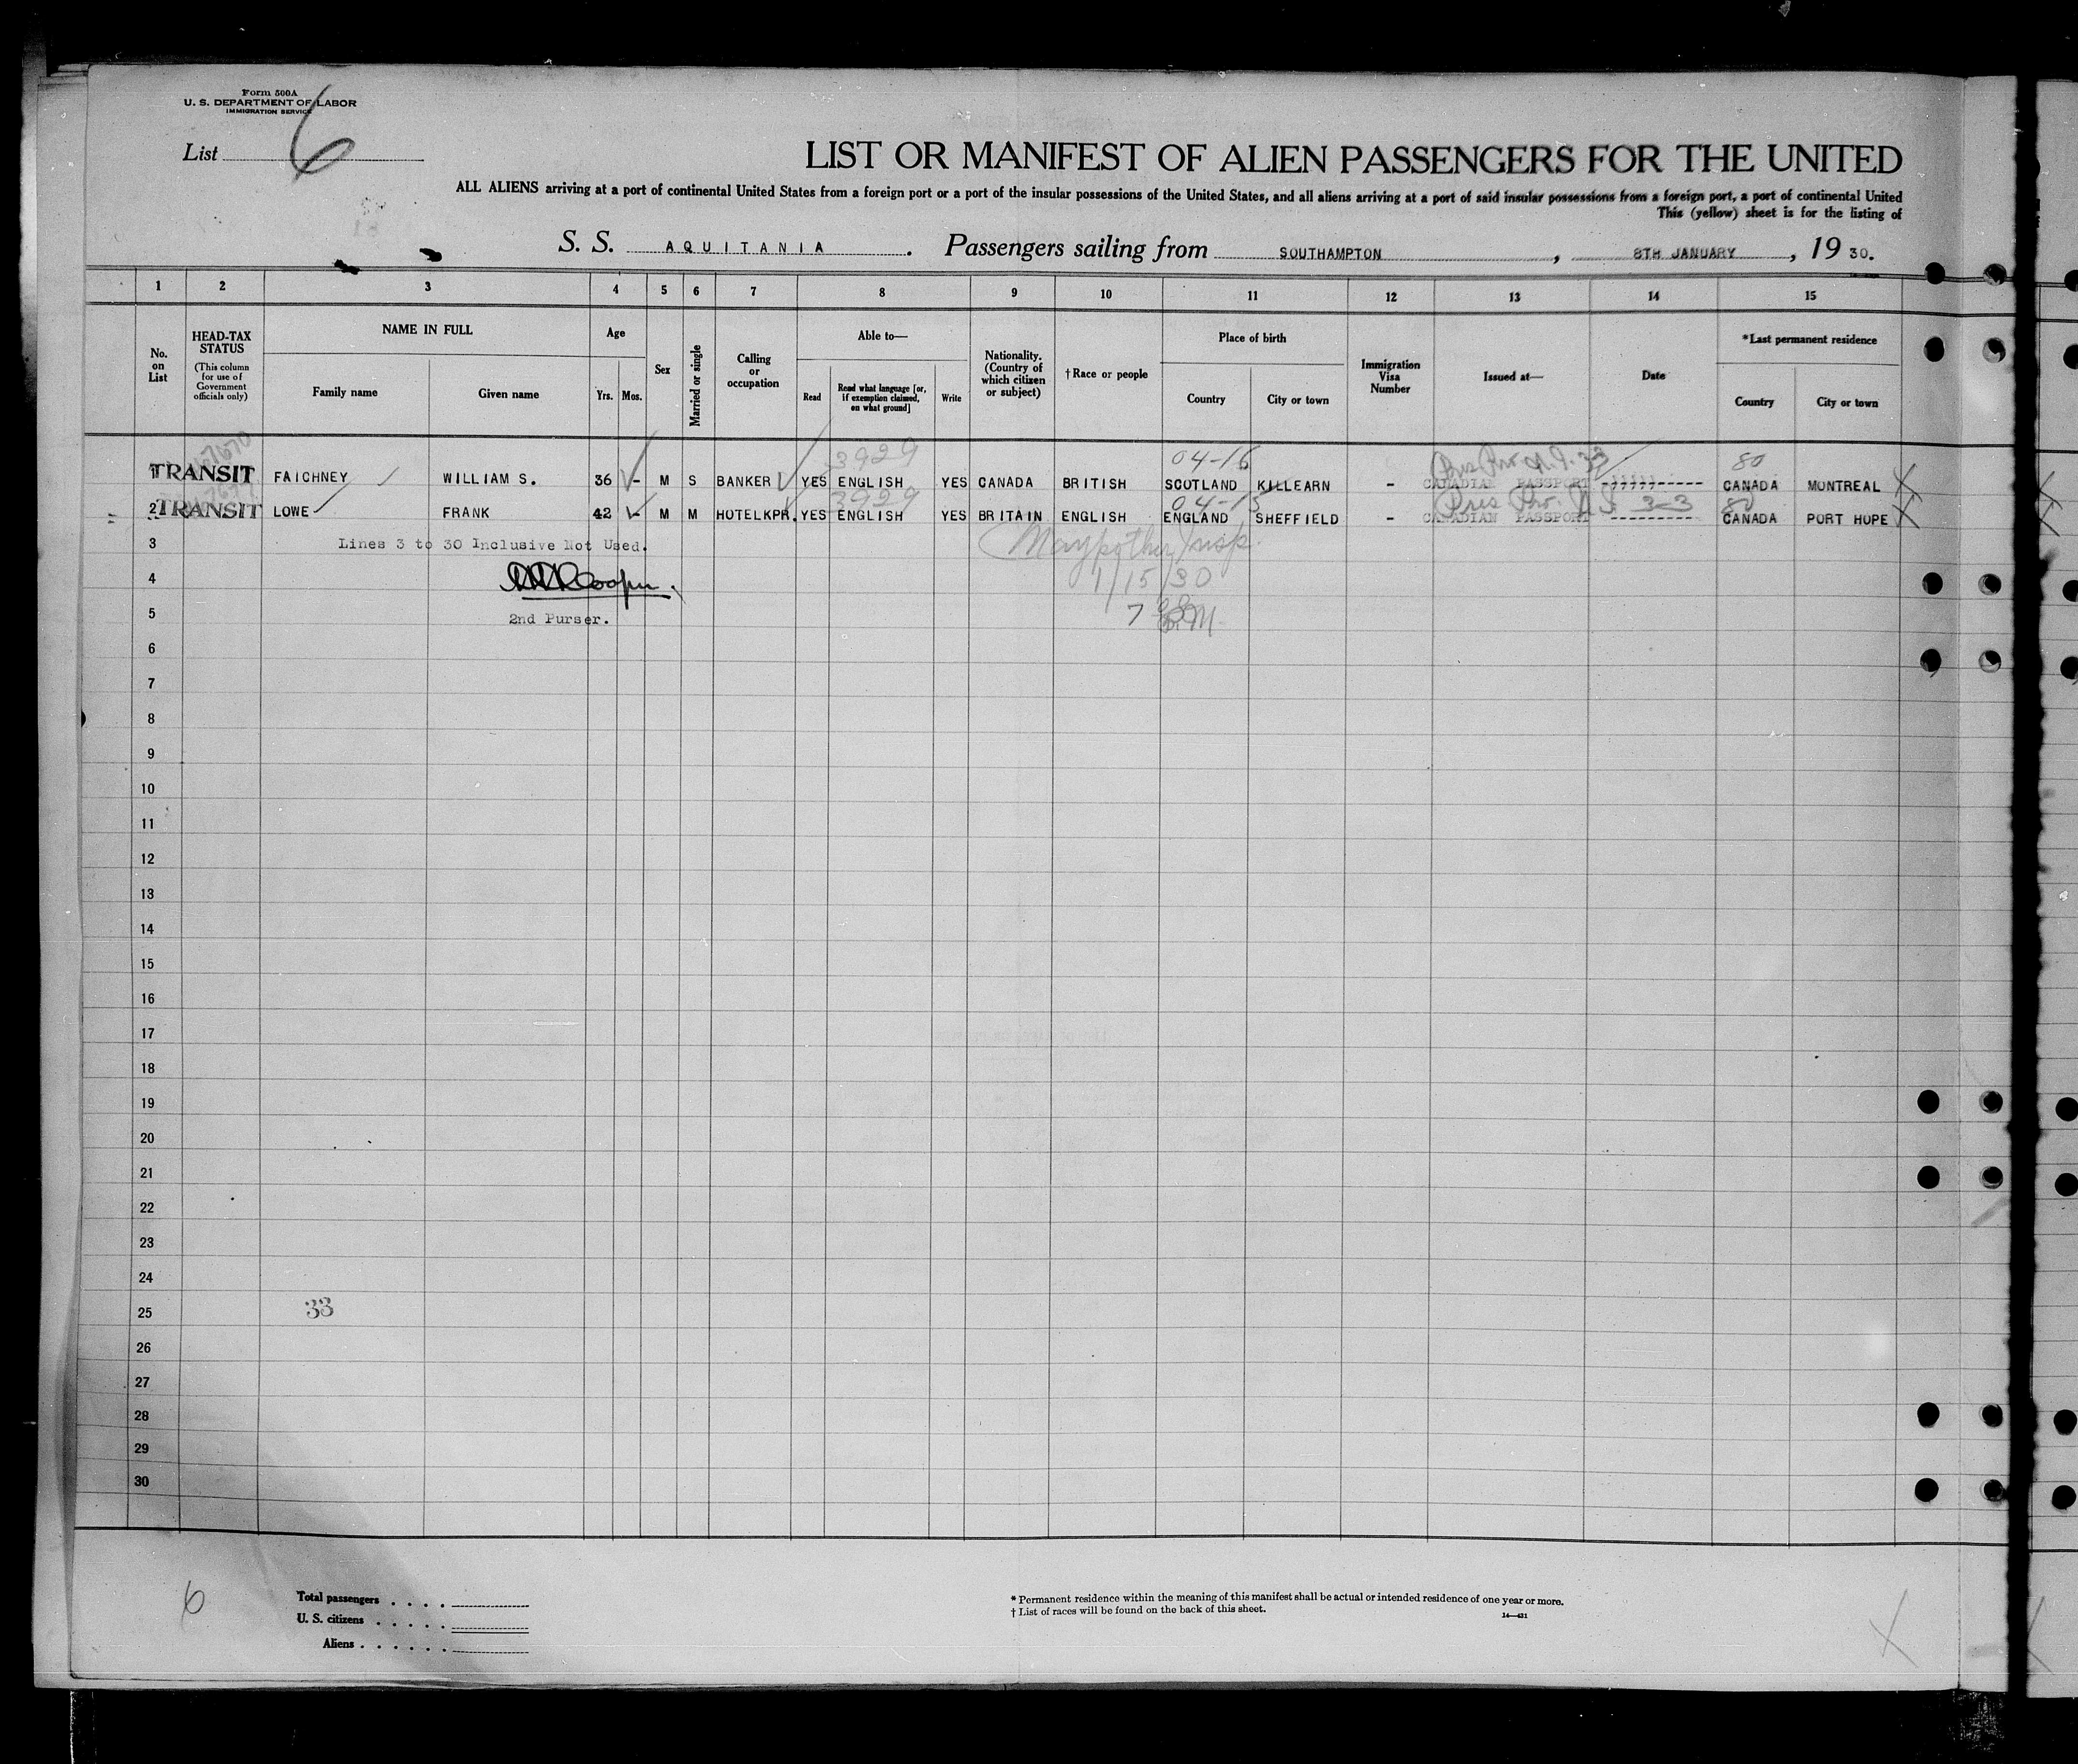 Form 500A
U. S. DEPARTMENT OF LABOR
IMMIGRATION SERVICE
List 6
LIST OR MANIFEST OF ALIEN PASSENGERS FOR THE UNITED
ALL ALIENS arriving at a port of continental United States from a foreign port or a port of the insular possessions of the United States, and all aliens arriving at a port of said insular possessions from a foreign port, a port of continental United
This (yellow) sheet is for the listing of
S. S. AQUITANIA. Passengers sailing from SOUTHAMPTON, 8TH JANUARY, 19 30.
1 2 3 4 5 6 7 8 9 10 11 12 13 14 15
No. on List
HEAD-TAX STATUS
(This column for use of Government officials only)
NAME IN FULL
Family name
Given name
Age
Yrs. Mos.
Sex
Married or single
Calling or occupation
Able to—
Read
Read what language [or, if exemption claimed, on what ground]
Write
Nationality. (Country of which citizen or subject)
†Race or people
Place of birth
Country
City or town
Immigration Visa Number
Issued at—
Date
*Last permanent residence
Country
City or town
3929 04-16 80
1 TRANSIT FAICHNEY WILLIAM S. 36 - M S BANKER YES ENGLISH YES CANADA BRITISH SCOTLAND KILLEARN - CANADIAN PASSPORT CANADA MONTREAL
3929 04-15 3-3 80
2 TRANSIT LOWE FRANK 42 - M M HOTELKPR. YES ENGLISH YES BRITAIN ENGLISH ENGLAND SHEFFIELD - CANADIAN PASSPORT CANADA PORT HOPE
3 Lines 3 to 30 Inclusive Not Used.
4 Cooper. 1/15/30
5 2nd Purser. 7
6
7
8
9
10
11
12
13
14
15
16
17
18
19
20
21
22
23
24
25 33
26
27
28
29
30
6
Total passengers
U. S. citizens
Aliens
* Permanent residence within the meaning of this manifest shall be actual or intended residence of one year or more.
† List of races will be found on the back of this sheet.
14—431